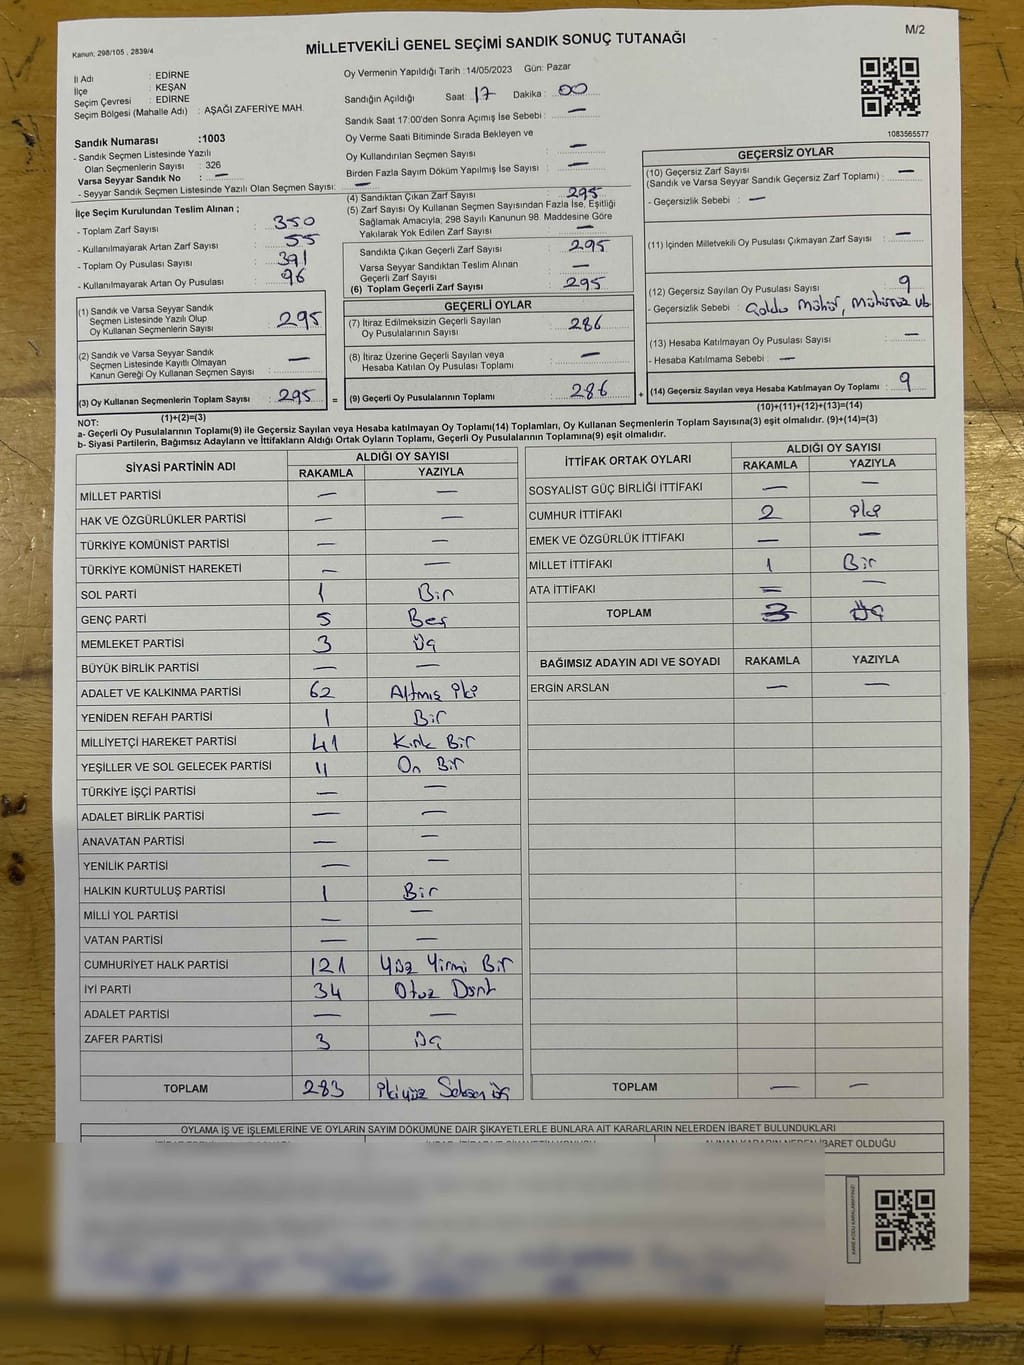 M/2
Kanun: 298/105 , 2839/4
MİLLETVEKİLİ GENEL SEÇİMİ SANDIK SONUÇ TUTANAĞI
İl Adı : EDİRNE
İlçe : KEŞAN
Seçim Çevresi : EDİRNE
Seçim Bölgesi (Mahalle Adı) : AŞAĞI ZAFERİYE MAH.
Sandık Numarası :1003
- Sandık Seçmen Listesinde Yazılı
Olan Seçmenlerin Sayısı : 326
Varsa Seyyar Sandık No : —
- Seyyar Sandık Seçmen Listesinde Yazılı Olan Seçmen Sayısı: —
İlçe Seçim Kurulundan Teslim Alınan ;
- Toplam Zarf Sayısı : 350
- Kullanılmayarak Artan Zarf Sayısı : 55
- Toplam Oy Pusulası Sayısı : 391
- Kullanılmayarak Artan Oy Pusulası : 96
(1) Sandık ve Varsa Seyyar Sandık
Seçmen Listesinde Yazılı Olup
Oy Kullanan Seçmenlerin Sayısı : 295
(2) Sandık ve Varsa Seyyar Sandık
Seçmen Listesinde Kayıtlı Olmayan
Kanun Gereği Oy Kullanan Seçmen Sayısı : —
(3) Oy Kullanan Seçmenlerin Toplam Sayısı : 295
(1)+(2)=(3)
Oy Vermenin Yapıldığı Tarih :14/05/2023 Gün: Pazar
Sandığın Açıldığı Saat: 17 Dakika : 00
Sandık Saat 17:00'den Sonra Açımış İse Sebebi : —
Oy Verme Saati Bitiminde Sırada Bekleyen ve
Oy Kullandırılan Seçmen Sayısı : —
Birden Fazla Sayım Döküm Yapılmış İse Sayısı : —
(4) Sandıktan Çıkan Zarf Sayısı : 295
(5) Zarf Sayısı Oy Kullanan Seçmen Sayısından Fazla İse, Eşitliği
Sağlamak Amacıyla, 298 Sayılı Kanunun 98. Maddesine Göre
Yakılarak Yok Edilen Zarf Sayısı : —
Sandıkta Çıkan Geçerli Zarf Sayısı : 295
Varsa Seyyar Sandıktan Teslim Alınan
Geçerli Zarf Sayısı : —
(6) Toplam Geçerli Zarf Sayısı : 295
GEÇERLİ OYLAR
(7) İtiraz Edilmeksizin Geçerli Sayılan
Oy Pusulalarının Sayısı : 286
(8) İtiraz Üzerine Geçerli Sayılan veya
Hesaba Katılan Oy Pusulası Toplamı : —
= (9) Geçerli Oy Pusulalarının Toplamı : 286 +
1083565577
GEÇERSİZ OYLAR
(10) Geçersiz Zarf Sayısı
(Sandık ve Varsa Seyyar Sandık Geçersiz Zarf Toplamı) : —
- Geçersizlik Sebebi : —
(11) İçinden Milletvekili Oy Pusulası Çıkmayan Zarf Sayısı : —
(12) Geçersiz Sayılan Oy Pusulası Sayısı : 9
- Geçersizlik Sebebi : Çoklu Mühür, Mühürsüz vb
(13) Hesaba Katılmayan Oy Pusulası Sayısı : —
- Hesaba Katılmama Sebebi : —
(14) Geçersiz Sayılan veya Hesaba Katılmayan Oy Toplamı : 9
(10)+(11)+(12)+(13)=(14)
NOT:
a- Geçerli Oy Pusulalarının Toplamı(9) ile Geçersiz Sayılan veya Hesaba katılmayan Oy Toplamı(14) Toplamları, Oy Kullanan Seçmenlerin Toplam Sayısına(3) eşit olmalıdır. (9)+(14)=(3)
b- Siyasi Partilerin, Bağımsız Adayların ve İttifakların Aldığı Ortak Oyların Toplamı, Geçerli Oy Pusulalarının Toplamına(9) eşit olmalıdır.
SİYASİ PARTİNİN ADI ALDIĞI OY SAYISI
RAKAMLA YAZIYLA
MİLLET PARTİSİ — —
HAK VE ÖZGÜRLÜKLER PARTİSİ — —
TÜRKİYE KOMÜNİST PARTİSİ — —
TÜRKİYE KOMÜNİST HAREKETİ — —
SOL PARTİ 1 Bir
GENÇ PARTİ 5 Beş
MEMLEKET PARTİSİ 3 Üç
BÜYÜK BİRLİK PARTİSİ — —
ADALET VE KALKINMA PARTİSİ 62 Altmış İki
YENİDEN REFAH PARTİSİ 1 Bir
MİLLİYETÇİ HAREKET PARTİSİ 41 Kırk Bir
YEŞİLLER VE SOL GELECEK PARTİSİ 11 On Bir
TÜRKİYE İŞÇİ PARTİSİ — —
ADALET BİRLİK PARTİSİ — —
ANAVATAN PARTİSİ — —
YENİLİK PARTİSİ — —
HALKIN KURTULUŞ PARTİSİ 1 Bir
MİLLİ YOL PARTİSİ — —
VATAN PARTİSİ — —
CUMHURİYET HALK PARTİSİ 121 Yüz Yirmi Bir
İYİ PARTİ 34 Otuz Dört
ADALET PARTİSİ — —
ZAFER PARTİSİ 3 Üç
TOPLAM 283 İkiyüz Seksen Üç
İTTİFAK ORTAK OYLARI ALDIĞI OY SAYISI
RAKAMLA YAZIYLA
SOSYALİST GÜÇ BİRLİĞİ İTTİFAKI — —
CUMHUR İTTİFAKI 2 İki
EMEK VE ÖZGÜRLÜK İTTİFAKI — —
MİLLET İTTİFAKI 1 Bir
ATA İTTİFAKI — —
TOPLAM 3 Üç
BAĞIMSIZ ADAYIN ADI VE SOYADI RAKAMLA YAZIYLA
ERGİN ARSLAN — —
TOPLAM — —
OYLAMA İŞ VE İŞLEMLERİNE VE OYLARIN SAYIM DÖKÜMÜNE DAİR ŞİKAYETLERLE BUNLARA AİT KARARLARIN NELERDEN İBARET BULUNDUKLARI
ALINAN KARARIN NEDEN İBARET OLDUĞU